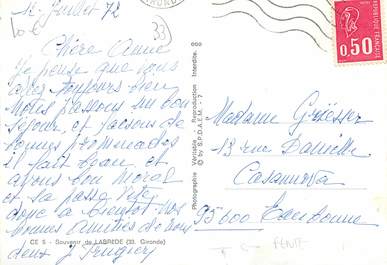 12 Juillet 72
10 €
33
GIRONDE
Chère Anne
Je pense que vous
allez toujours bien
Nous passons un bon
séjour, et faisons de
bonnes promenades
il fait beau, et
avons bon moral
et sa passe vite
donc a bientot nos
bonnes amitiés de nous
deux J.
CE 5 - Souvenir de LABREDE (33. Gironde)
Photographie Véritable - Reproduction Interdite.
© by S.P.D.A.E.M. - 7
REPUBLIQUE FRANCAISE
0,50
Madame
13 rue Danielle
Casanova
95600 Eaubonne